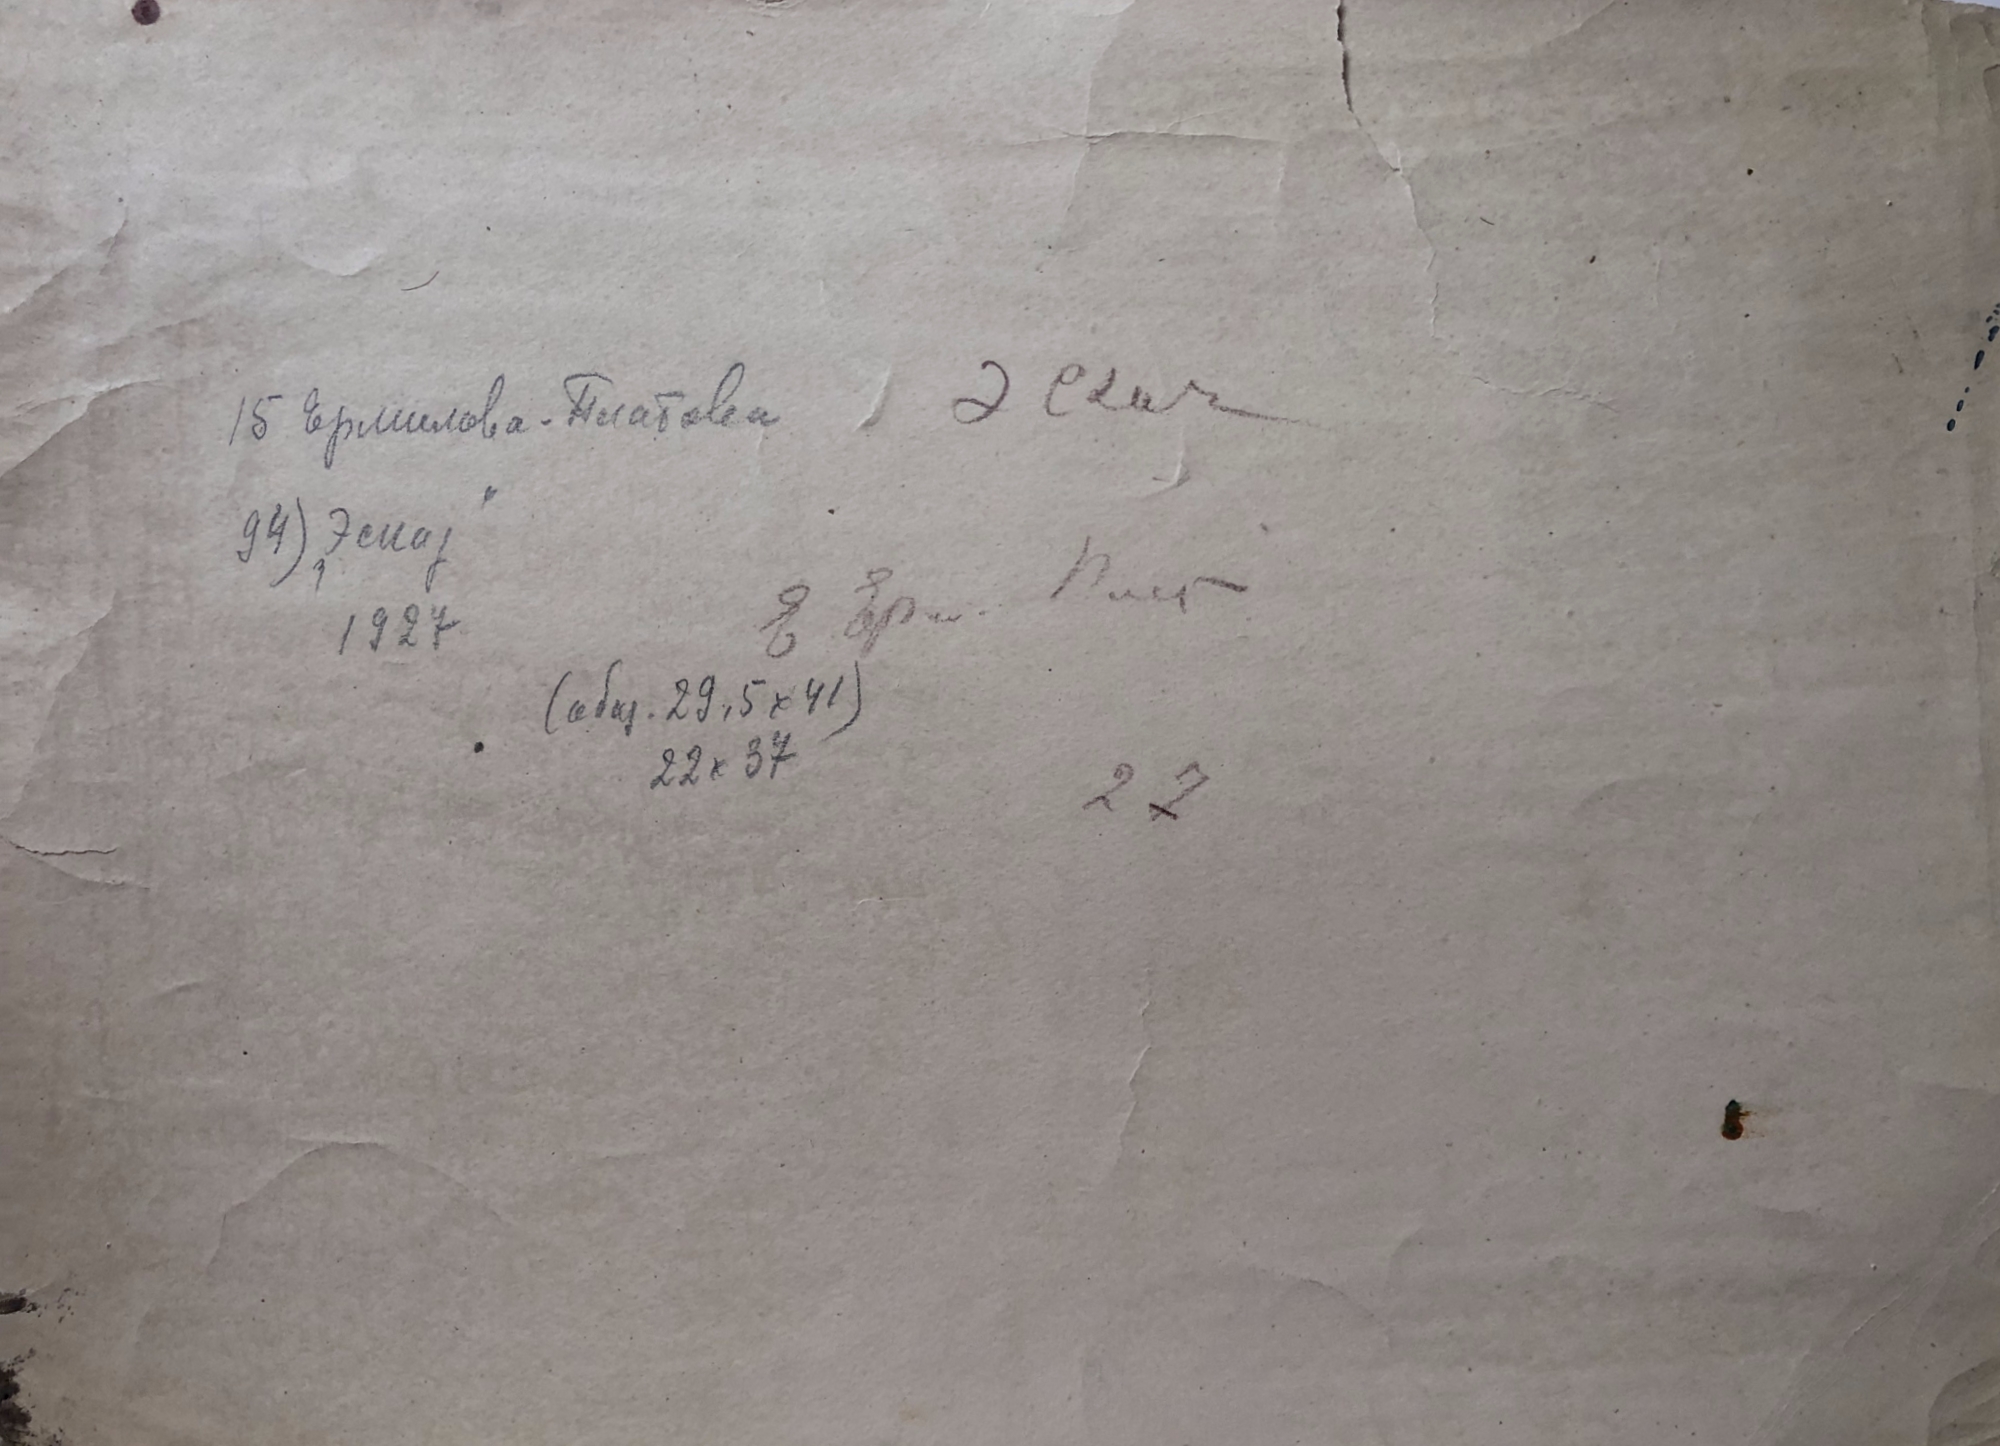 15 Ермилова-Платова Эскиз
94) „Эскиз"
1927
Е Ерм. Плат
(общ. 29,5 x 41)
22 x 37
27